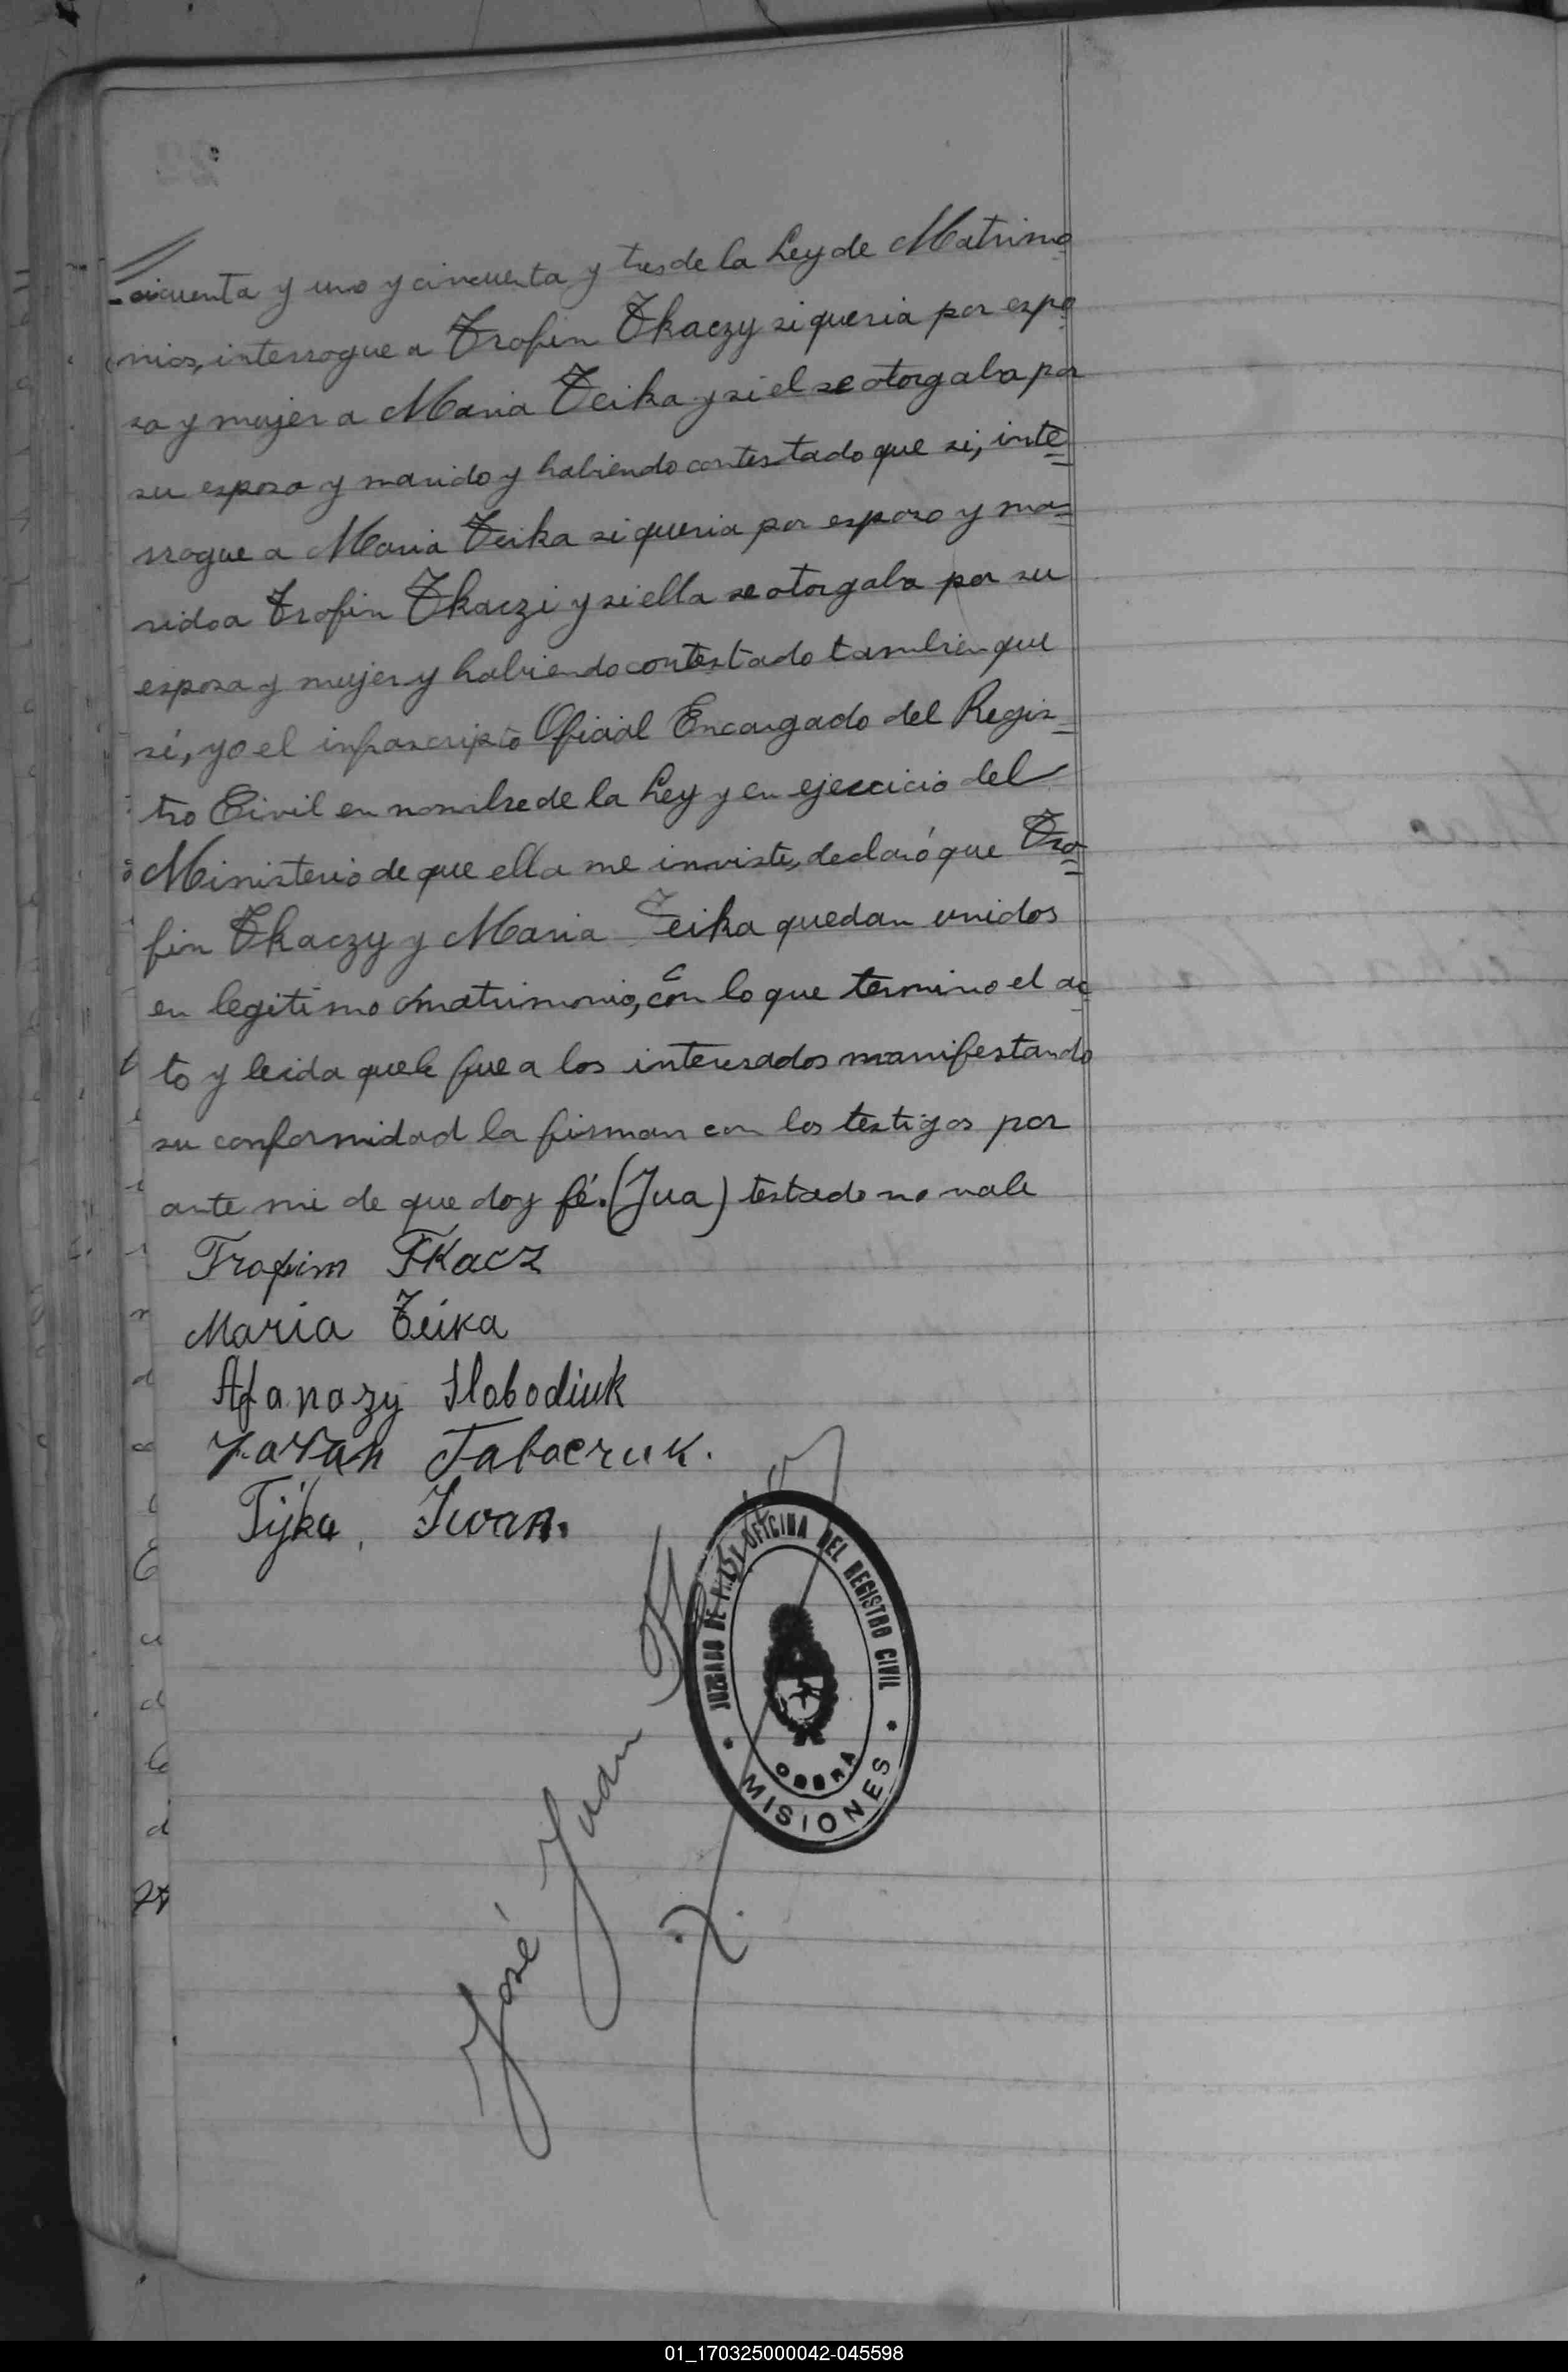 cicuenta y uno y cincuenta y tres de la Ley de Matrimo
nios, interrogue a Trofin Tkaczy si queria por espo
sa y mujer a Maria Teika y si el se otorgaba por
su esposo y marido y habiendo contestado que si, inte=
rrogue a Maria Teika si queria por esposo y ma=
rido a Trofin Tkaczi y si ella se otorgaba por su
esposa y mujer y habiendo contestado tambien que
sí, yo el infrascripto Oficial Encargado del Regis=
tro Civil en nombre de la Ley y en ejercicio del
Ministerio de que ella me inviste, declaró que Tro=
fin Tkaczy y Maria Teika quedan unidos
en legitimo matrimonio, con lo que termino el ac
to y leida que le fue a los interesados manifestando
su conformidad la firman con los testigos por
ante mi de que doy fé. (Jua) testado no vale
Trofim Tkacz
Maria Teika
Afanazy Slobodiuk
Tabaczuk.
Tijka, Iwan.
José Juan
JUZGADO DE PAZ Y OFICINA DEL REGISTRO CIVIL
OBERA
MISIONES
01_170325000042-045598